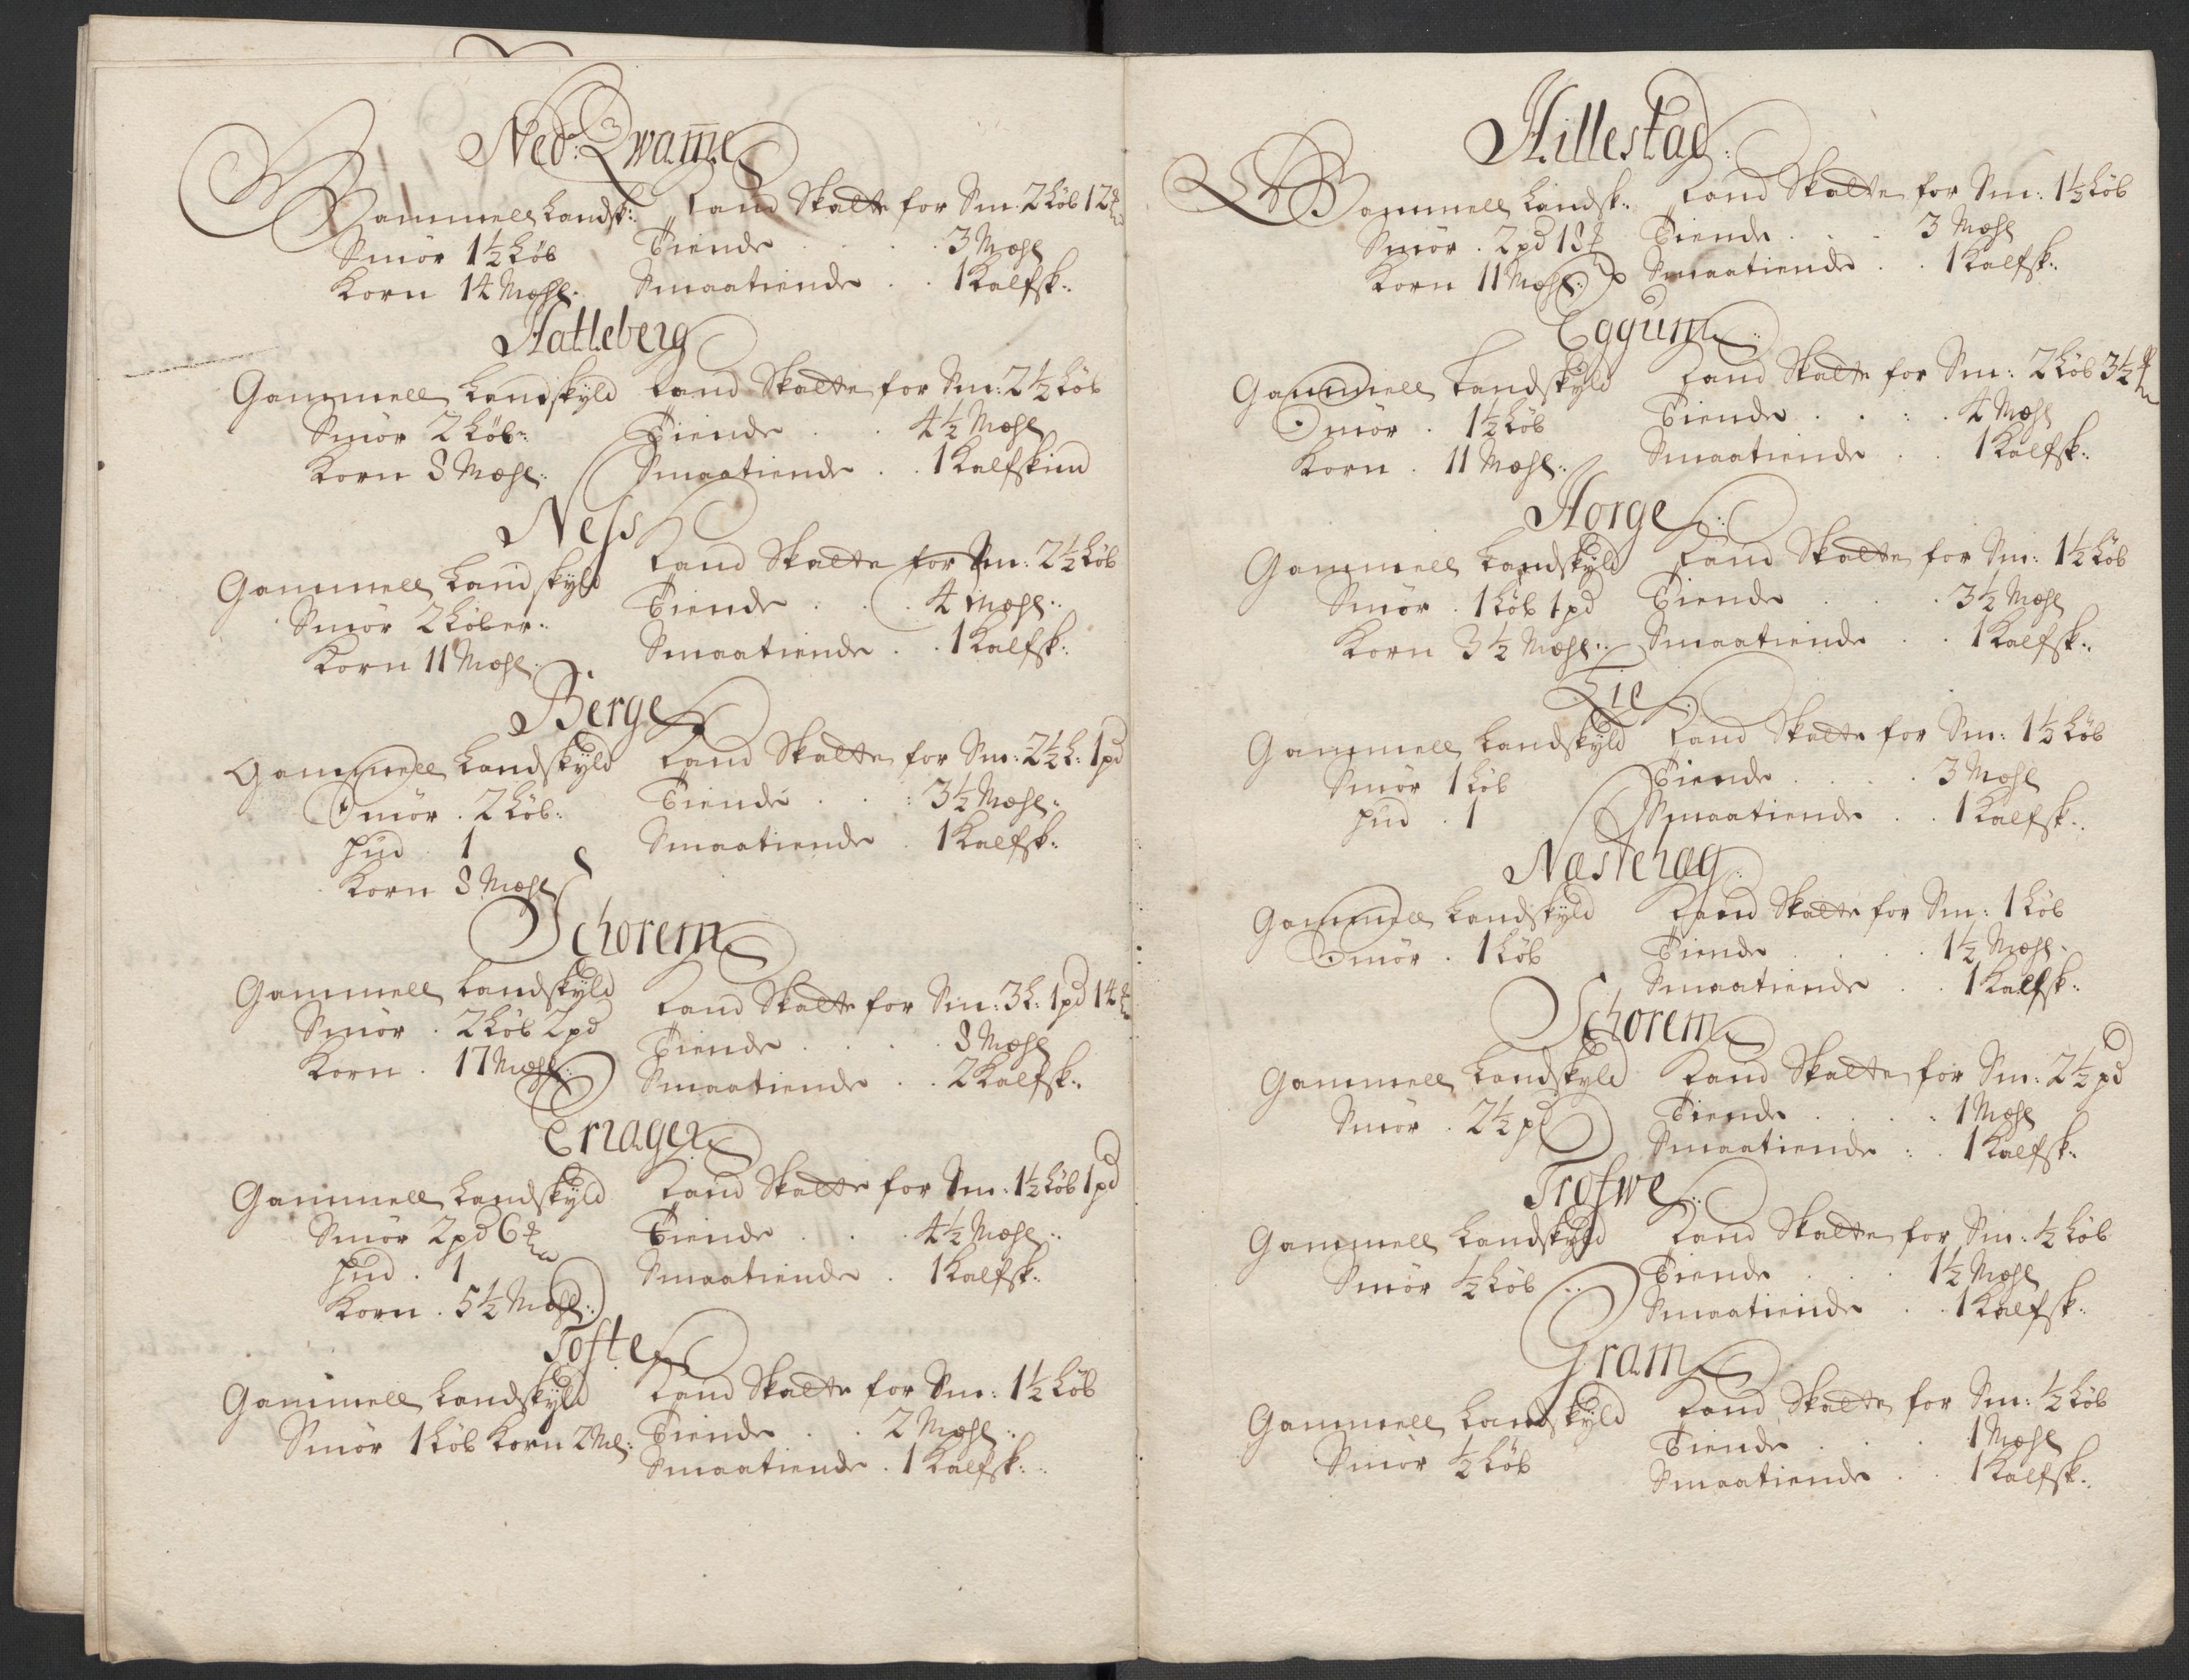 Ned: Qwam̅e
Gammell Landsk: Land Skatte for Sm. 2 Løb 12 ℔
Smør 1½ Løb Tiende . . . 3 Mæhl
Korn 14 Mæhl: Smaatiende . . 1 Kalfsk:
Hatleberg
Gammell Landskyld Land Skatte for Sm: 2½ Løb
Smør 2 Løb: Tiende . . 4½ Mæhl
Korn 8 Mæhl: Smaatiende . . 1 Kalfskind
Ness
Gammell Landskyld Land Skatte for Sm: 2½ Løb
Smør 2 Løber: Tiende . . . 4 Mæhl:
Korn 11 Mæhl: Smaatiende . . 1 Kalfsk:
Berge
Gammell Landskyld Land Skatte for Sm: 2½ L: 1 pd
Smør . 2 Løb: Tiende . . : 3½ Mæhl:
Hud . 1 Smaatiende . 1 Kalfsk:
Korn 8 Mæhl
Schorem
Gammell Landskyld Land Skatte for Sm: 3 L: 1 pd 14 ℔
Smør . 2 Løb 2 pd Tiende . . . . 8 Mæhl
Korn . 17 Mæhl: Smaatiende . . 2 Kalfsk:
Erzager
Gammell Landskyld Land Skatte for Sm: 1½ Løb 1 pd
Smør 2 pd 6 ℔ Tiende . . . 4½ Mæhl:
Hud . 1 Smaatiende . 1 Kalfsk:
Korn . 5½ Mæhl:
Tofte
Gammell Landskyld Land Skatte for Sm: 1½ Løb
Smør 1 Løb Korn 2 Ml: Tiende . . 2 Mæhl:
Smaatiende . 1 Kalfsk:
Hillestad:
Gammell Landsk: Land Skatte for Sm: 1½ Løb
Smør . 2 pd 18 Tiende . . . 3 Mæhl
Korn 11 Mæhl: Smaatiende . . 1 Kalfsk:
Eggum:
Gammell Landskyld Land Skatte for Sm: 2 Løb 3½ ℔
Smør . 1½ Løb Tiende . . : . 4 Mæhl
Korn . 11 Mæhl: Smaatiende . . 1 Kalfsk:
Horge:
Gammell Landskyld Land Skatte for Sm: 1½ Løb
Smør . 1 Løb 1 pd Tiende . . . 3½ Mæhl
Korn 3½ Mæhl: Smaatiende . . 1 Kalfsk:
Lie
Gammell Landskyld Land Skatte for Sm: 1½ Løb
Smør 1 Løb Tiende . . . . 3 Mæhl
Hud . 1 Smaatiende . . 1 Kalfsk:
Næstehag:
Gammell Landskyld Land Skatte for Sm: 1 Løb
Smør . 1 Løb Tiende . . . . 1½ Mæhl.
Smaatiende . . 1 Kalfsk:
Schorem
Gammell Landskyld Land Skatte for Sm: 2½ pd
Smør . 2½ pd Tiende . . . . 1 Mæhl
Smaatiende : . 1 Kalfsk:
Trofwe:
Gammell Landskyld Land Skatte for Sm: ½ Løb
Smør ½ Løb Tiende . . . 1½ Mæhl
Smaatiende . . 1 Kalfsk:
Gram
Gammell Landskyld Land Skatte for Sm: ½ Løb
Smør ½ Løb Tiende . . . 1 Mæhl
Smaatiende . . 1 Kalfsk: